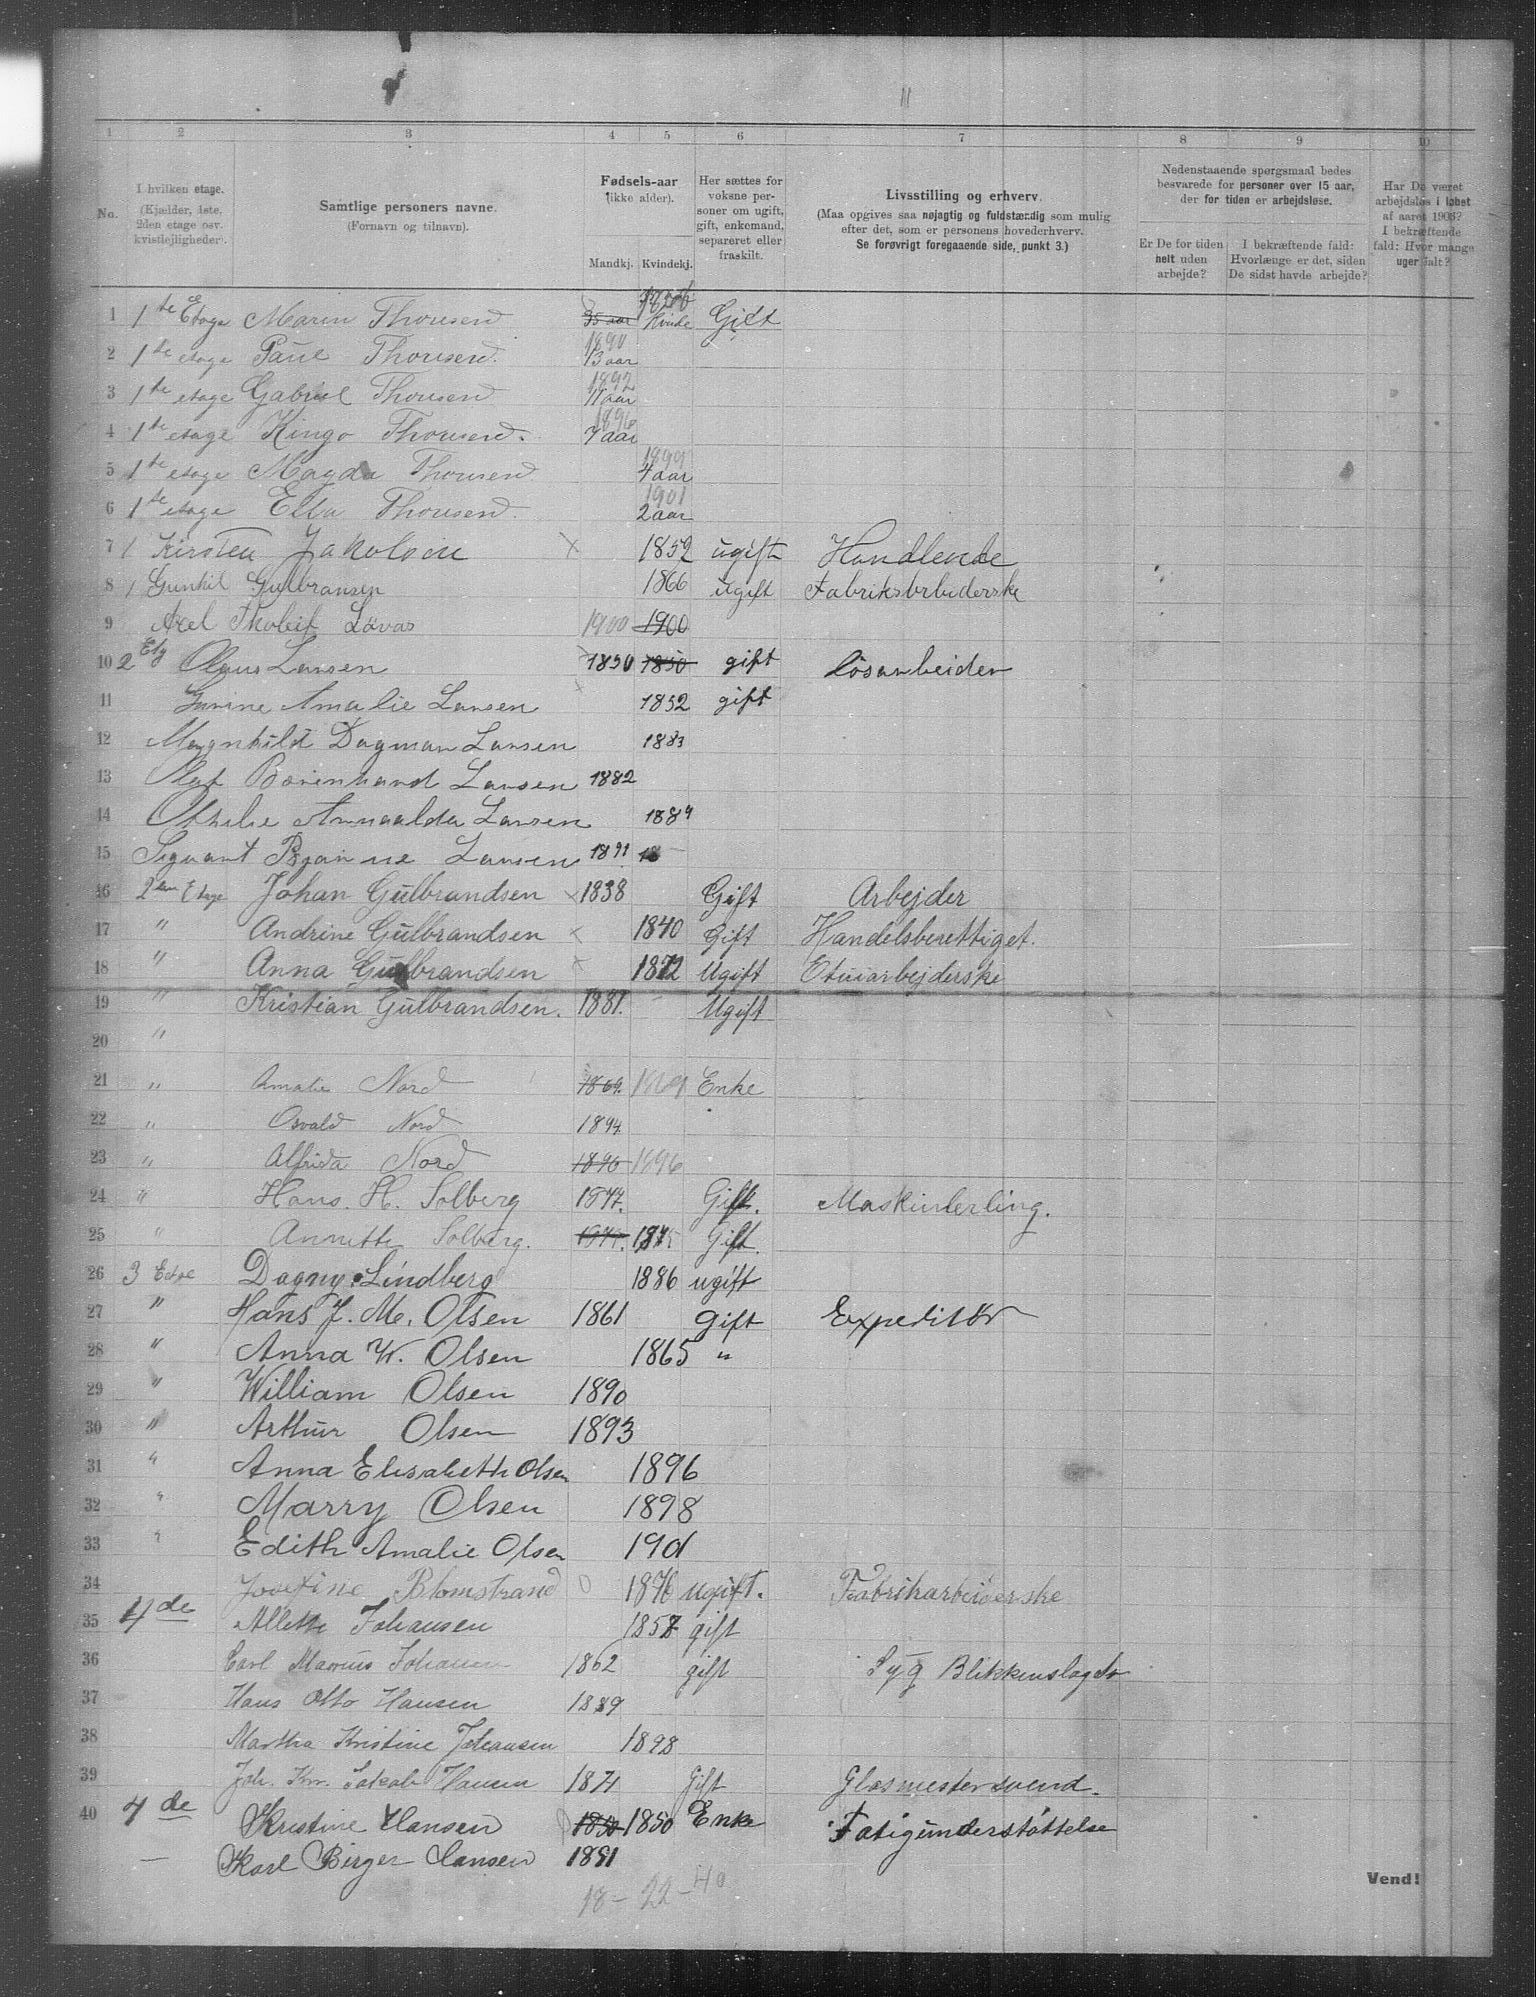 11
1 2 3 4 5 6 7 8 9 10
No.
I hvilken etage.
(Kjælder, 1ste, 2den etage osv. kvistlejligheder).
Samtlige personers navne.
(Fornavn og tilnavn).
Fødsels-aar
(ikke alder).
Mandkj. Kvindekj.
Her sættes for voksne personer om ugift, gift, enkemand, separeret eller fraskilt.
Livsstilling og erhverv.
(Maa opgives saa nøjagtig og fuldstændig som mulig efter det, som er personens hovederhverv.
Se forøvrigt foregaaende side, punkt 3.)
Nedenstaaende spørgsmaal bedes besvarede for personer over 15 aar, der for tiden er arbejdsløse.
Er De for tiden helt uden arbejde?
I bekræftende fald: Hvorlænge er det, siden De sidst havde arbejde?
Har De været arbejdsløs i løbet af aaret 1903? I bekræftende fald: Hvor mange uger ialt?
1 1ste Etage Maren Thousend 35 aar Kvinde Gift
2 1ste etage Paul Thousend. 1890 13 aar
3 1ste etage Gabriel Thousend 1892 11 aar
4 1ste etage Kingo Thousend. 1896 7 aar
5 1ste etage Magda Thousend 1899 4 aar
6 1ste etage Ella Thousend. 1901 2 aar
7 1 Kirsten Jakobsen x 1852 ugift Handlende
8 1 Gunhil Gulbransen 1866 ugift Fabrikarbiderske
9 Axel Tholeif Lövas 1900 1900
10 2 Etg Olaus Larsen 1850 1850 gift lösarbeider
11 Amalie Larsen 1852 gift
12 Magnhild Dagmar Larsen 1883
13 Olaf Larsen 1882
14 Othilie Larsen 1884
15 Sigvart Bjarne Larsen 1891 18
16 2den Etage Johan Gulbrandsen x 1838 Gift Arbejder
17 " Andrine Gulbrandsen x 1840 Gift Handelsberettiget.
18 " Anna Gulbrandsen x 1872 Ugift Etuiarbejderske
19 " Kristian Gulbrandsen. 1881. " Ugift
20 "
21 " Amalie Nord 1869. 1869 Enke
22 " Osvald Nord 1894.
23 " Alfrida Nord 1896 1896
24 " Hans. H. Solberg 1877. Gift. Maskinlerling.
25 " Annette Solberg. 1875. 1875 Gift.
26 3 Etge Dagny Lindberg 1886 ugift
27 " Hans J. M. Olsen 1861 Gift Expeditör
28 " Anna W. Olsen 1865 "
29 " William Olsen 1890
30 " Arthur Olsen 1893
31 " Anna Elisabeth Olsen 1896
32 " Marry Olsen 1898
33 " Edith Amalie Olsen 1901
34 Josefine Blomstrand 0 1876 Ugift. Fabrikarbeiderske
35 4de Allette Johansen 1858 gift
36 Carl Marius Johansen 1862 gift Syg Blikkenslager
37 Hans Otto Hansen 1889
38 Martha Kristine Johansen 1898
39 Joh. Kr. Jakob Hansen 1871 Gift Glasmestersvend.
40 4de Kristine Hansen 1850 1850 Enke Fatigunderstøttelse
— Karl Birger Hansen 1891
18 - 22 - 40
Vend!